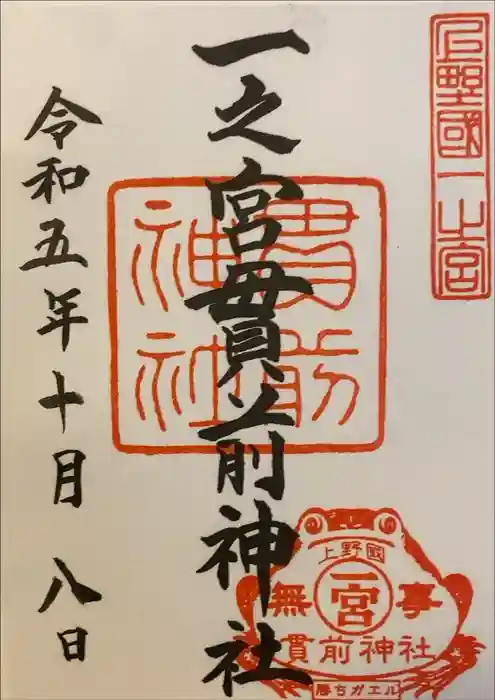 上野國一之宮
一之宮貫前神社
貫前神社
令和五年十月八日
上野國
一宮
無事
貫前神社
勝ちガエル